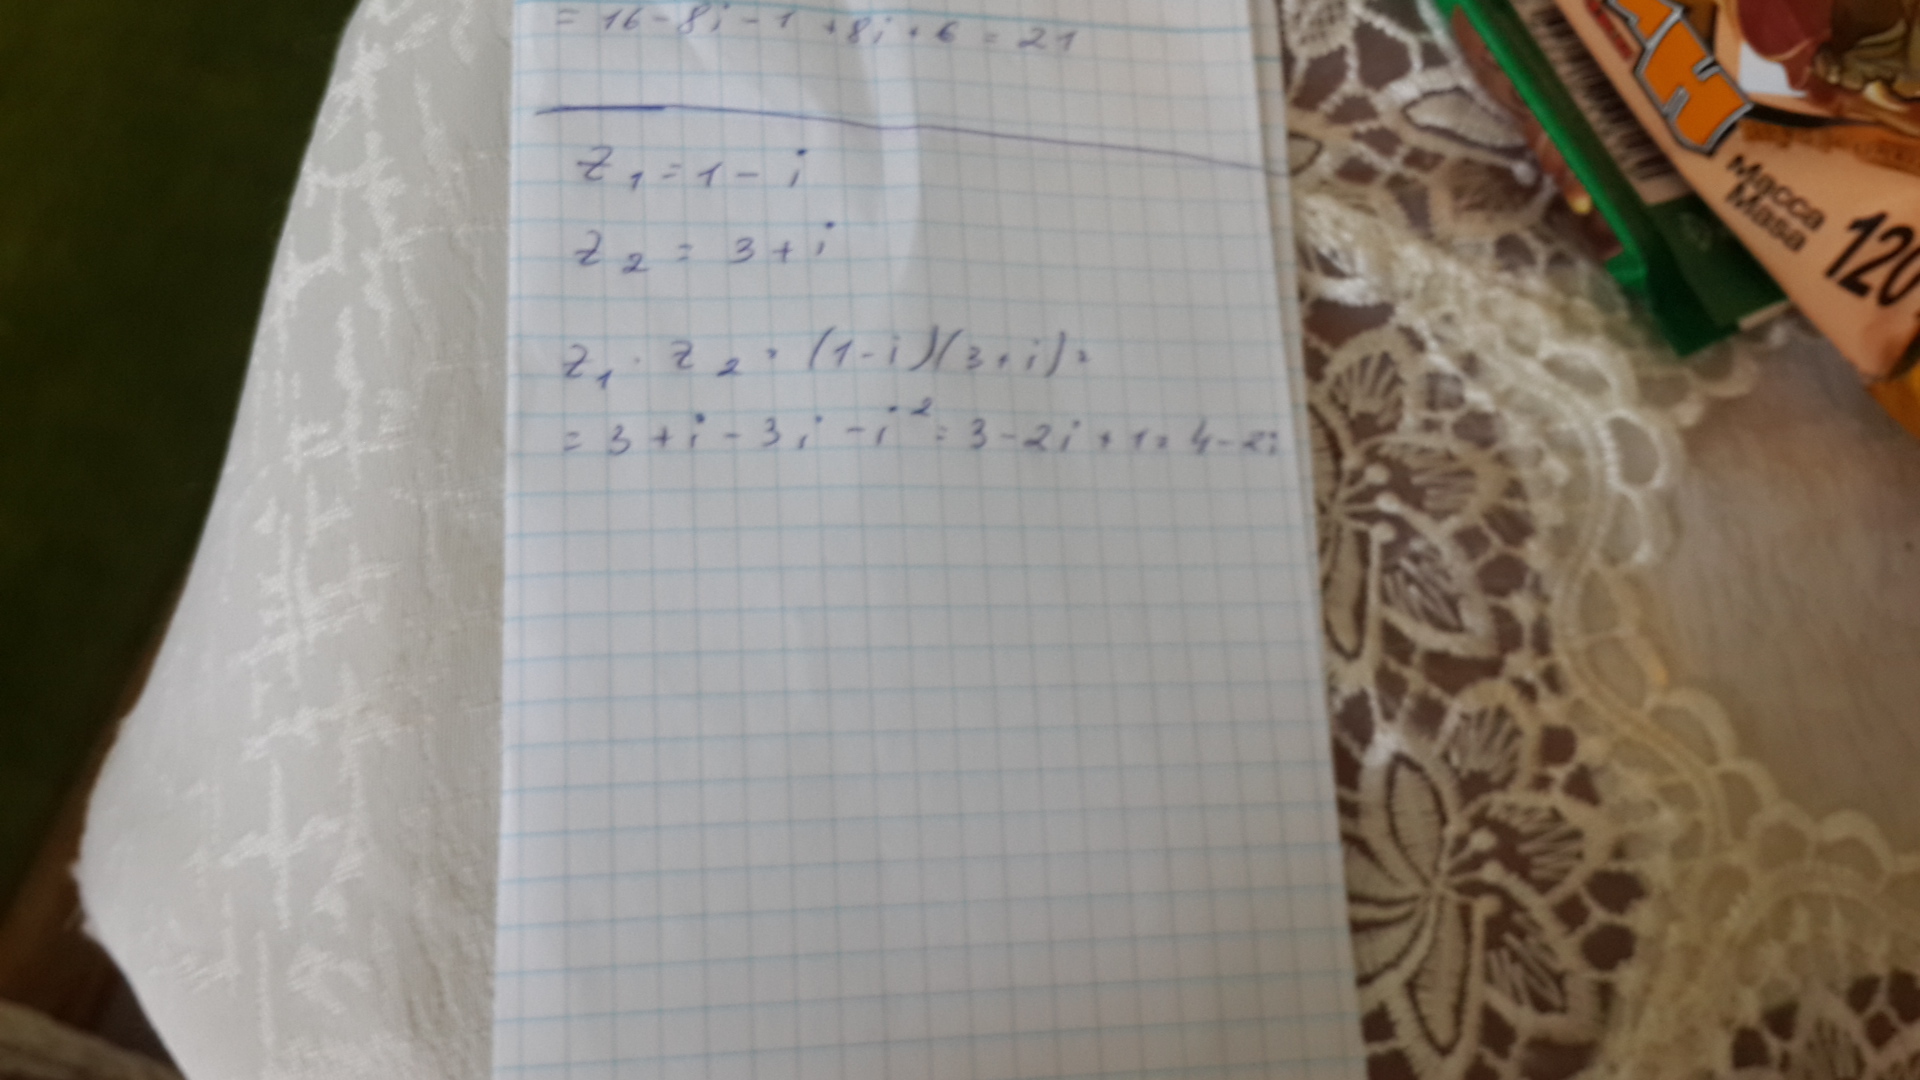 = 16 - 8i - 1 + 8i + 6 = 21
z₁ = 1 - i
z₂ = 3 + i
z₁ · z₂ = (1 - i)(3 + i) =
= 3 + i - 3i - i² = 3 - 2i + 1 = 4 - 2i
Масса
Masa
120